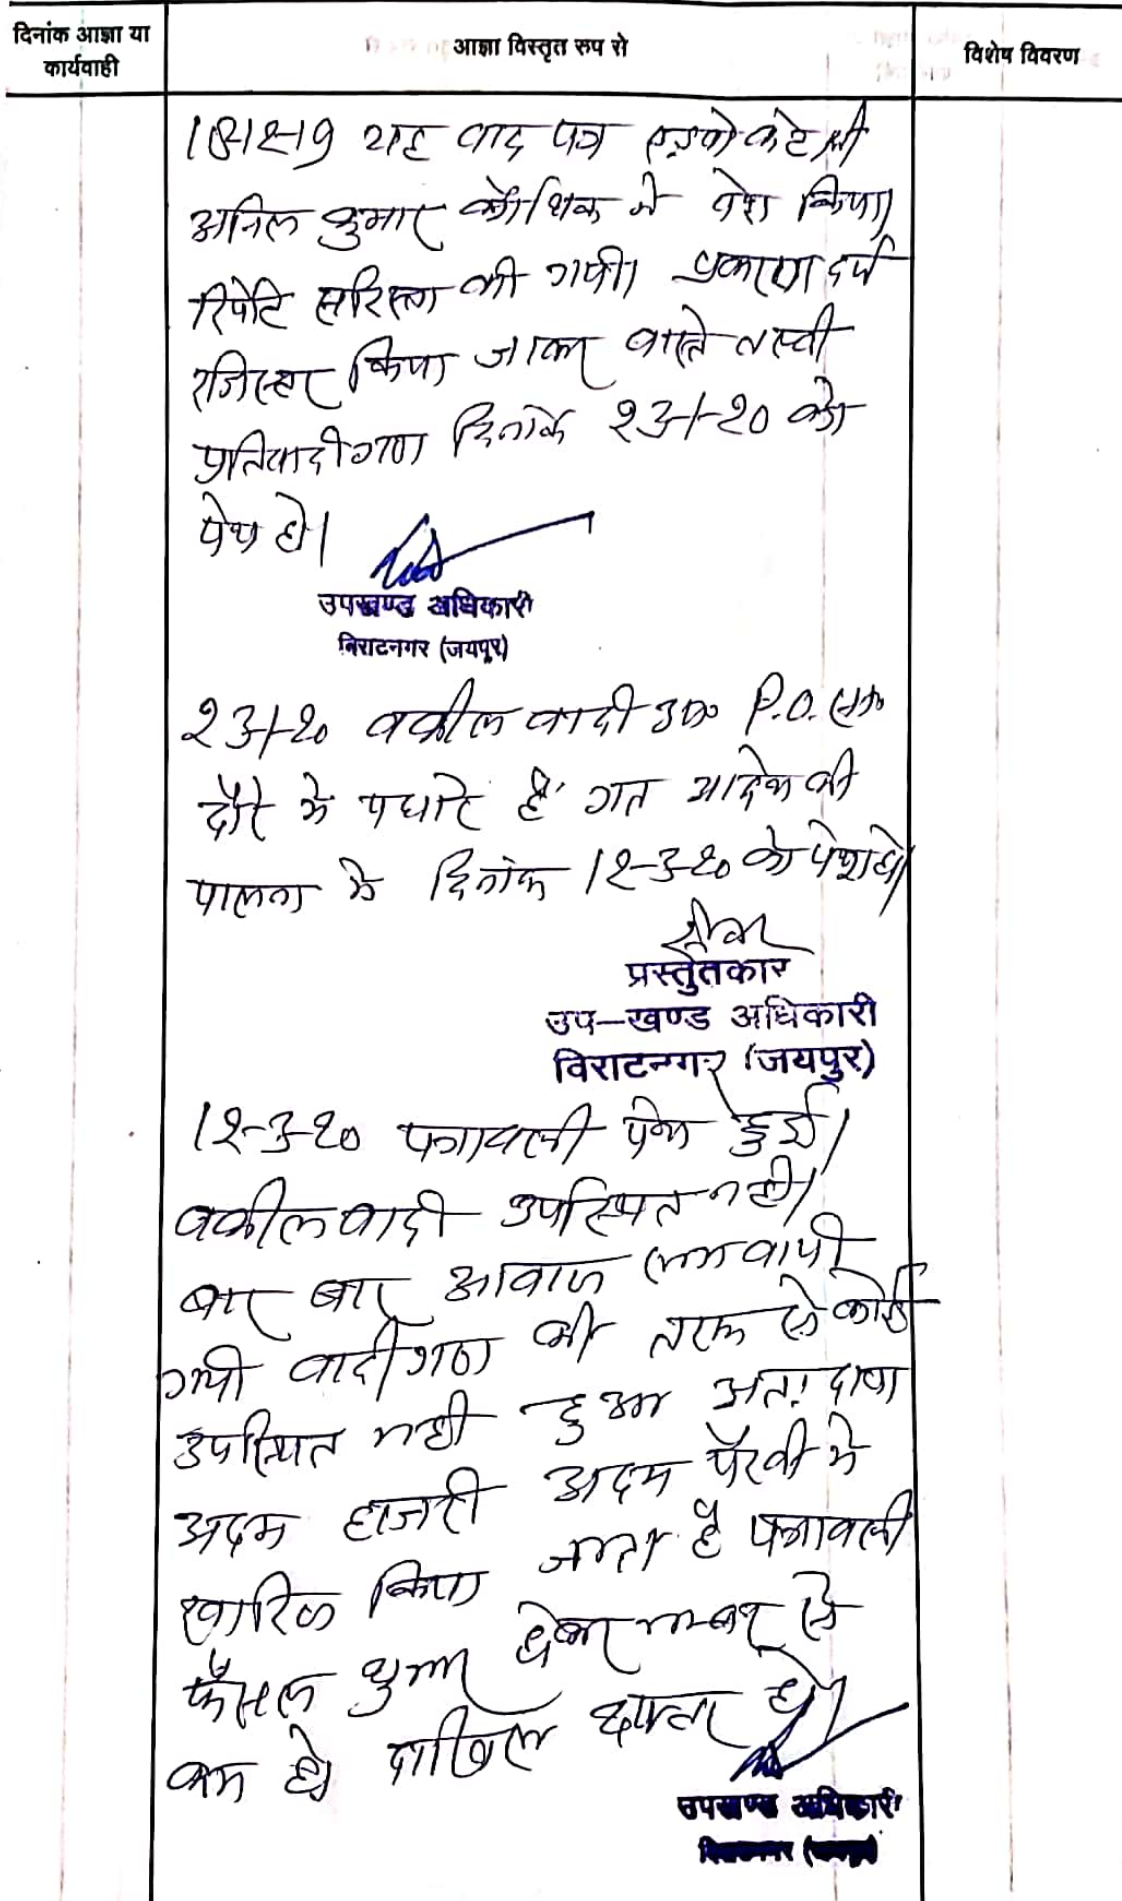 दिनांक आज्ञा या
कार्यवाही
आज्ञा विस्तृत रुप से
विशेष विवरण
18-12-19 यह वाद पत्र एडवोकेट श्री
अनिल कुमार कौशिक ने पेश किया।
रिपोर्ट सरिस्ता की गयी। प्रकरण दर्ज
रजिस्टर किया जाकर वास्ते तलबी
प्रतिवादीगण दिनांक 23-1-20 को
पेश हो।
उपखण्ड अधिकारी
विराटनगर (जयपुर)
23-1-20 वकील वादी उप० P.O.
दौरे मे पधारे है गत आदेश की
पालना मे दिनांक 12-3-20 को पेश हो।
प्रस्तुतकार
उप-खण्ड अधिकारी
विराटनगर (जयपुर)
12-3-20 पत्रावली पेश हुई।
वकील वादी उपस्थित नही।
बार बार आवाज लगवायी
गयी वादीगण की तरफ से कोई
उपस्थित नही हुआ अतः दावा
अदम हाजरी अदम पैरवी मे
खारिज किया जाता है पत्रावली
फैसल शुमार होकर नम्बर से
कम हो दाखिल दफ्तर हो।
उपखण्ड अधिकारी